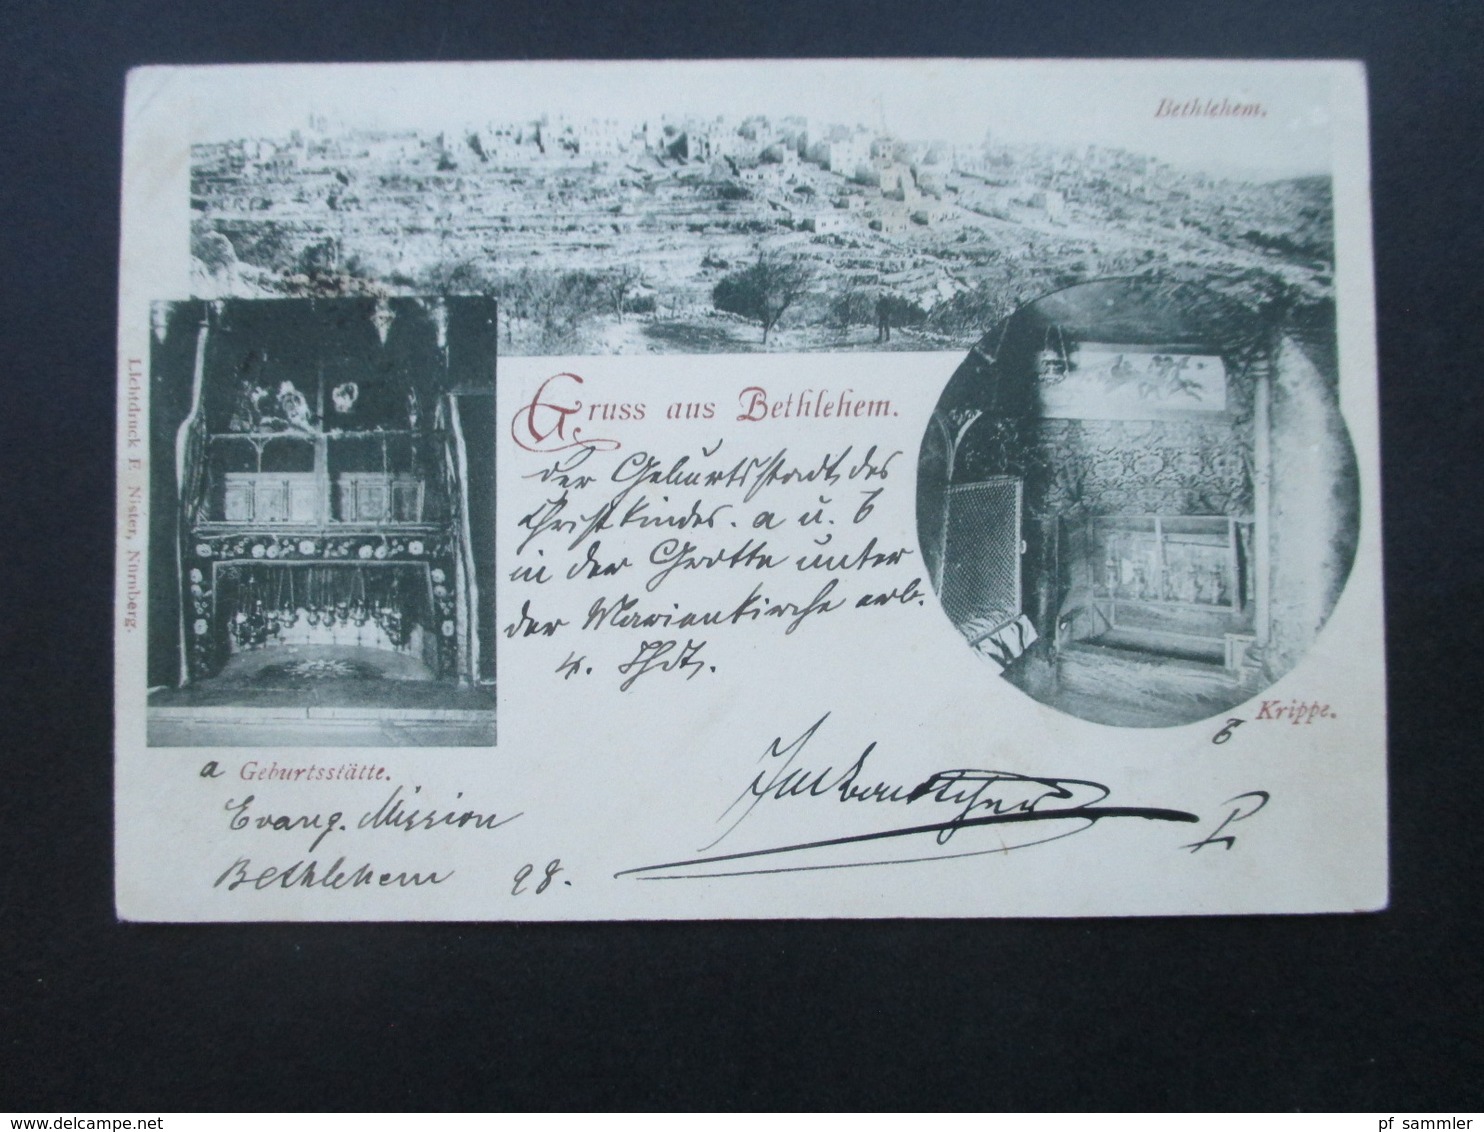 Bethlehem.
Lichtdruck E. Nister, Nürnberg.
Gruss aus Bethlehem.
der Geburtsstadt des
Christkindes. a u. b
in der Grotte unter
der Marienkirche erb.
4. Jhdt.
b Krippe.
a Geburtsstätte.
Evang. Mission
Bethlehem 98.
www.delcampe.net
pf_sammler